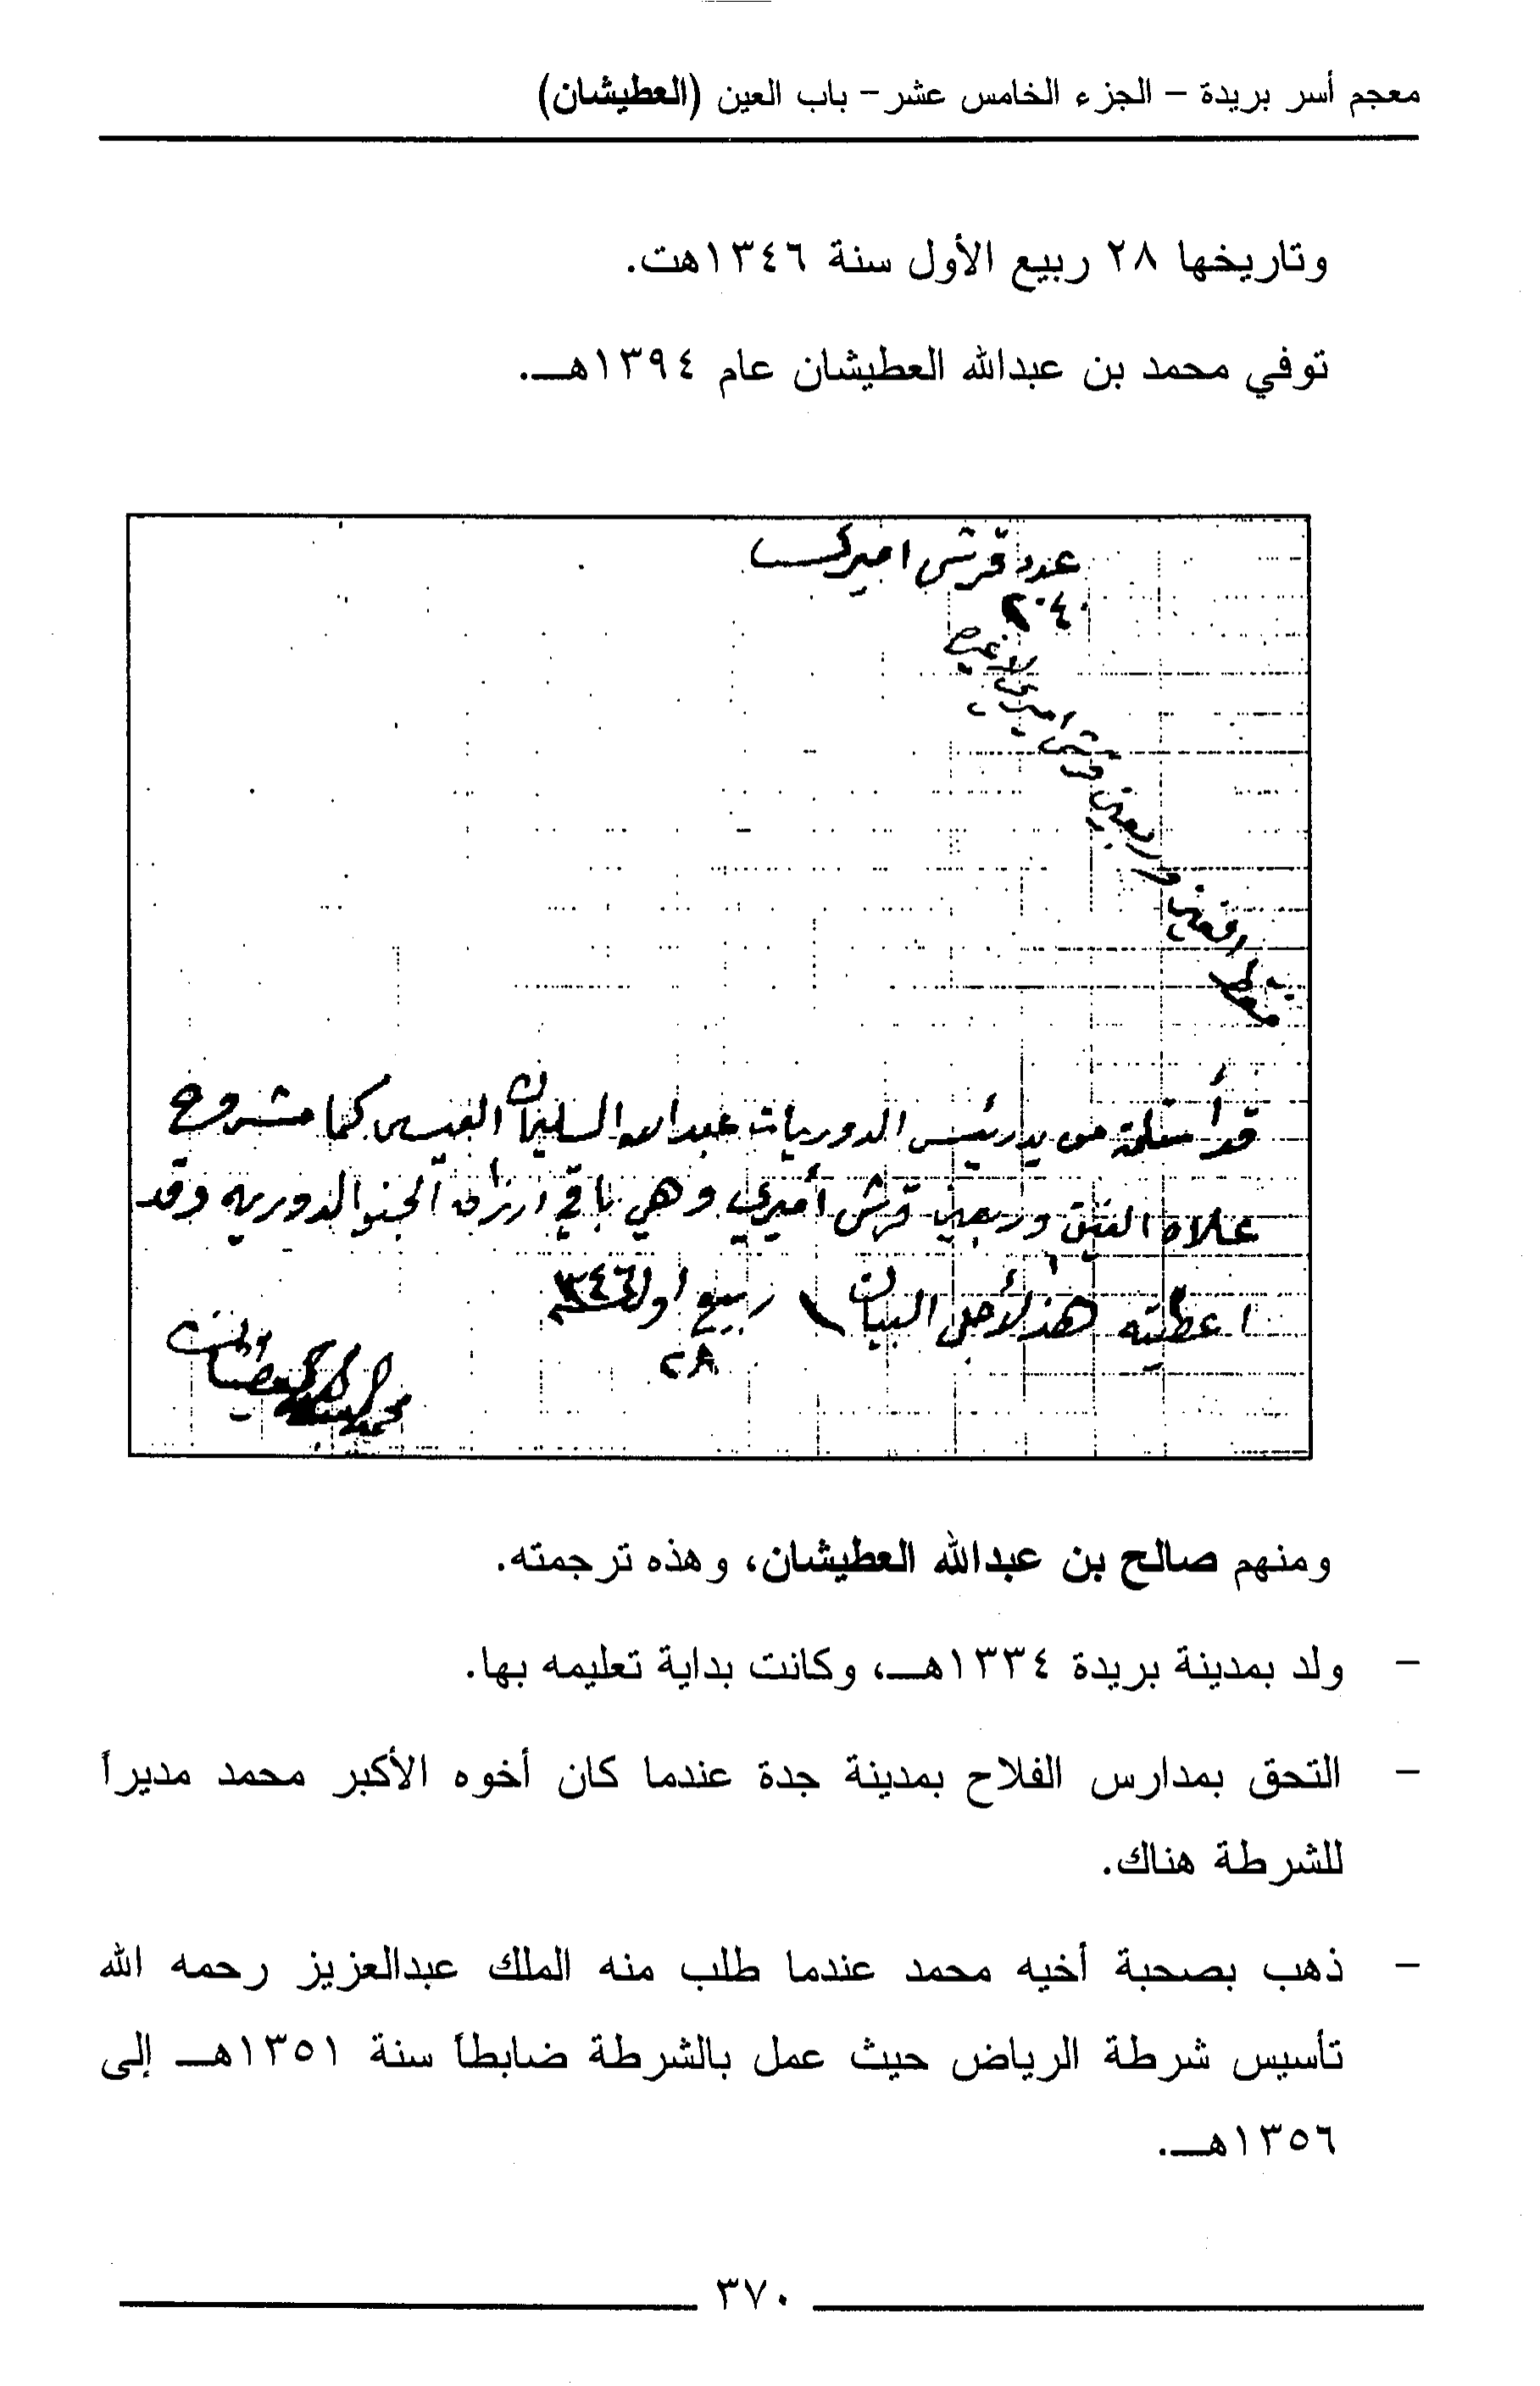 معجم أسر بريدة - الجزء الخامس عشر - باب العين (العطيشان)
وتاريخها ٢٨ ربيع الأول سنة ١٣٤٦هت.
توفي محمد بن عبدالله العطيشان عام ١٣٩٤هـ.
عدد قرش اميركـ
٢٠٤٠
لا غير
اميري
قرش
واربعين
الفين
فقط
قد أستلمة من يد رئيس الدوريات عبدالله السليمان العيسى كما مشروح
علاه الفين وربعين قرش أميري وهي باقي ارزاق الجنو الدوريه وقد
اعطيته هذا لأجل البيان ربيع اول سنة ١٣٤٦
٢٨
ومنهم صالح بن عبدالله العطيشان، وهذه ترجمته.
- ولد بمدينة بريدة ١٣٣٤هـ، وكانت بداية تعليمه بها.
- التحق بمدارس الفلاح بمدينة جدة عندما كان أخوه الأكبر محمد مديراً
للشرطة هناك.
- ذهب بصحبة أخيه محمد عندما طلب منه الملك عبدالعزيز رحمه الله
تأسيس شرطة الرياض حيث عمل بالشرطة ضابطاً سنة ١٣٥١هـ إلى
١٣٥٦هـ.
٣٧٠